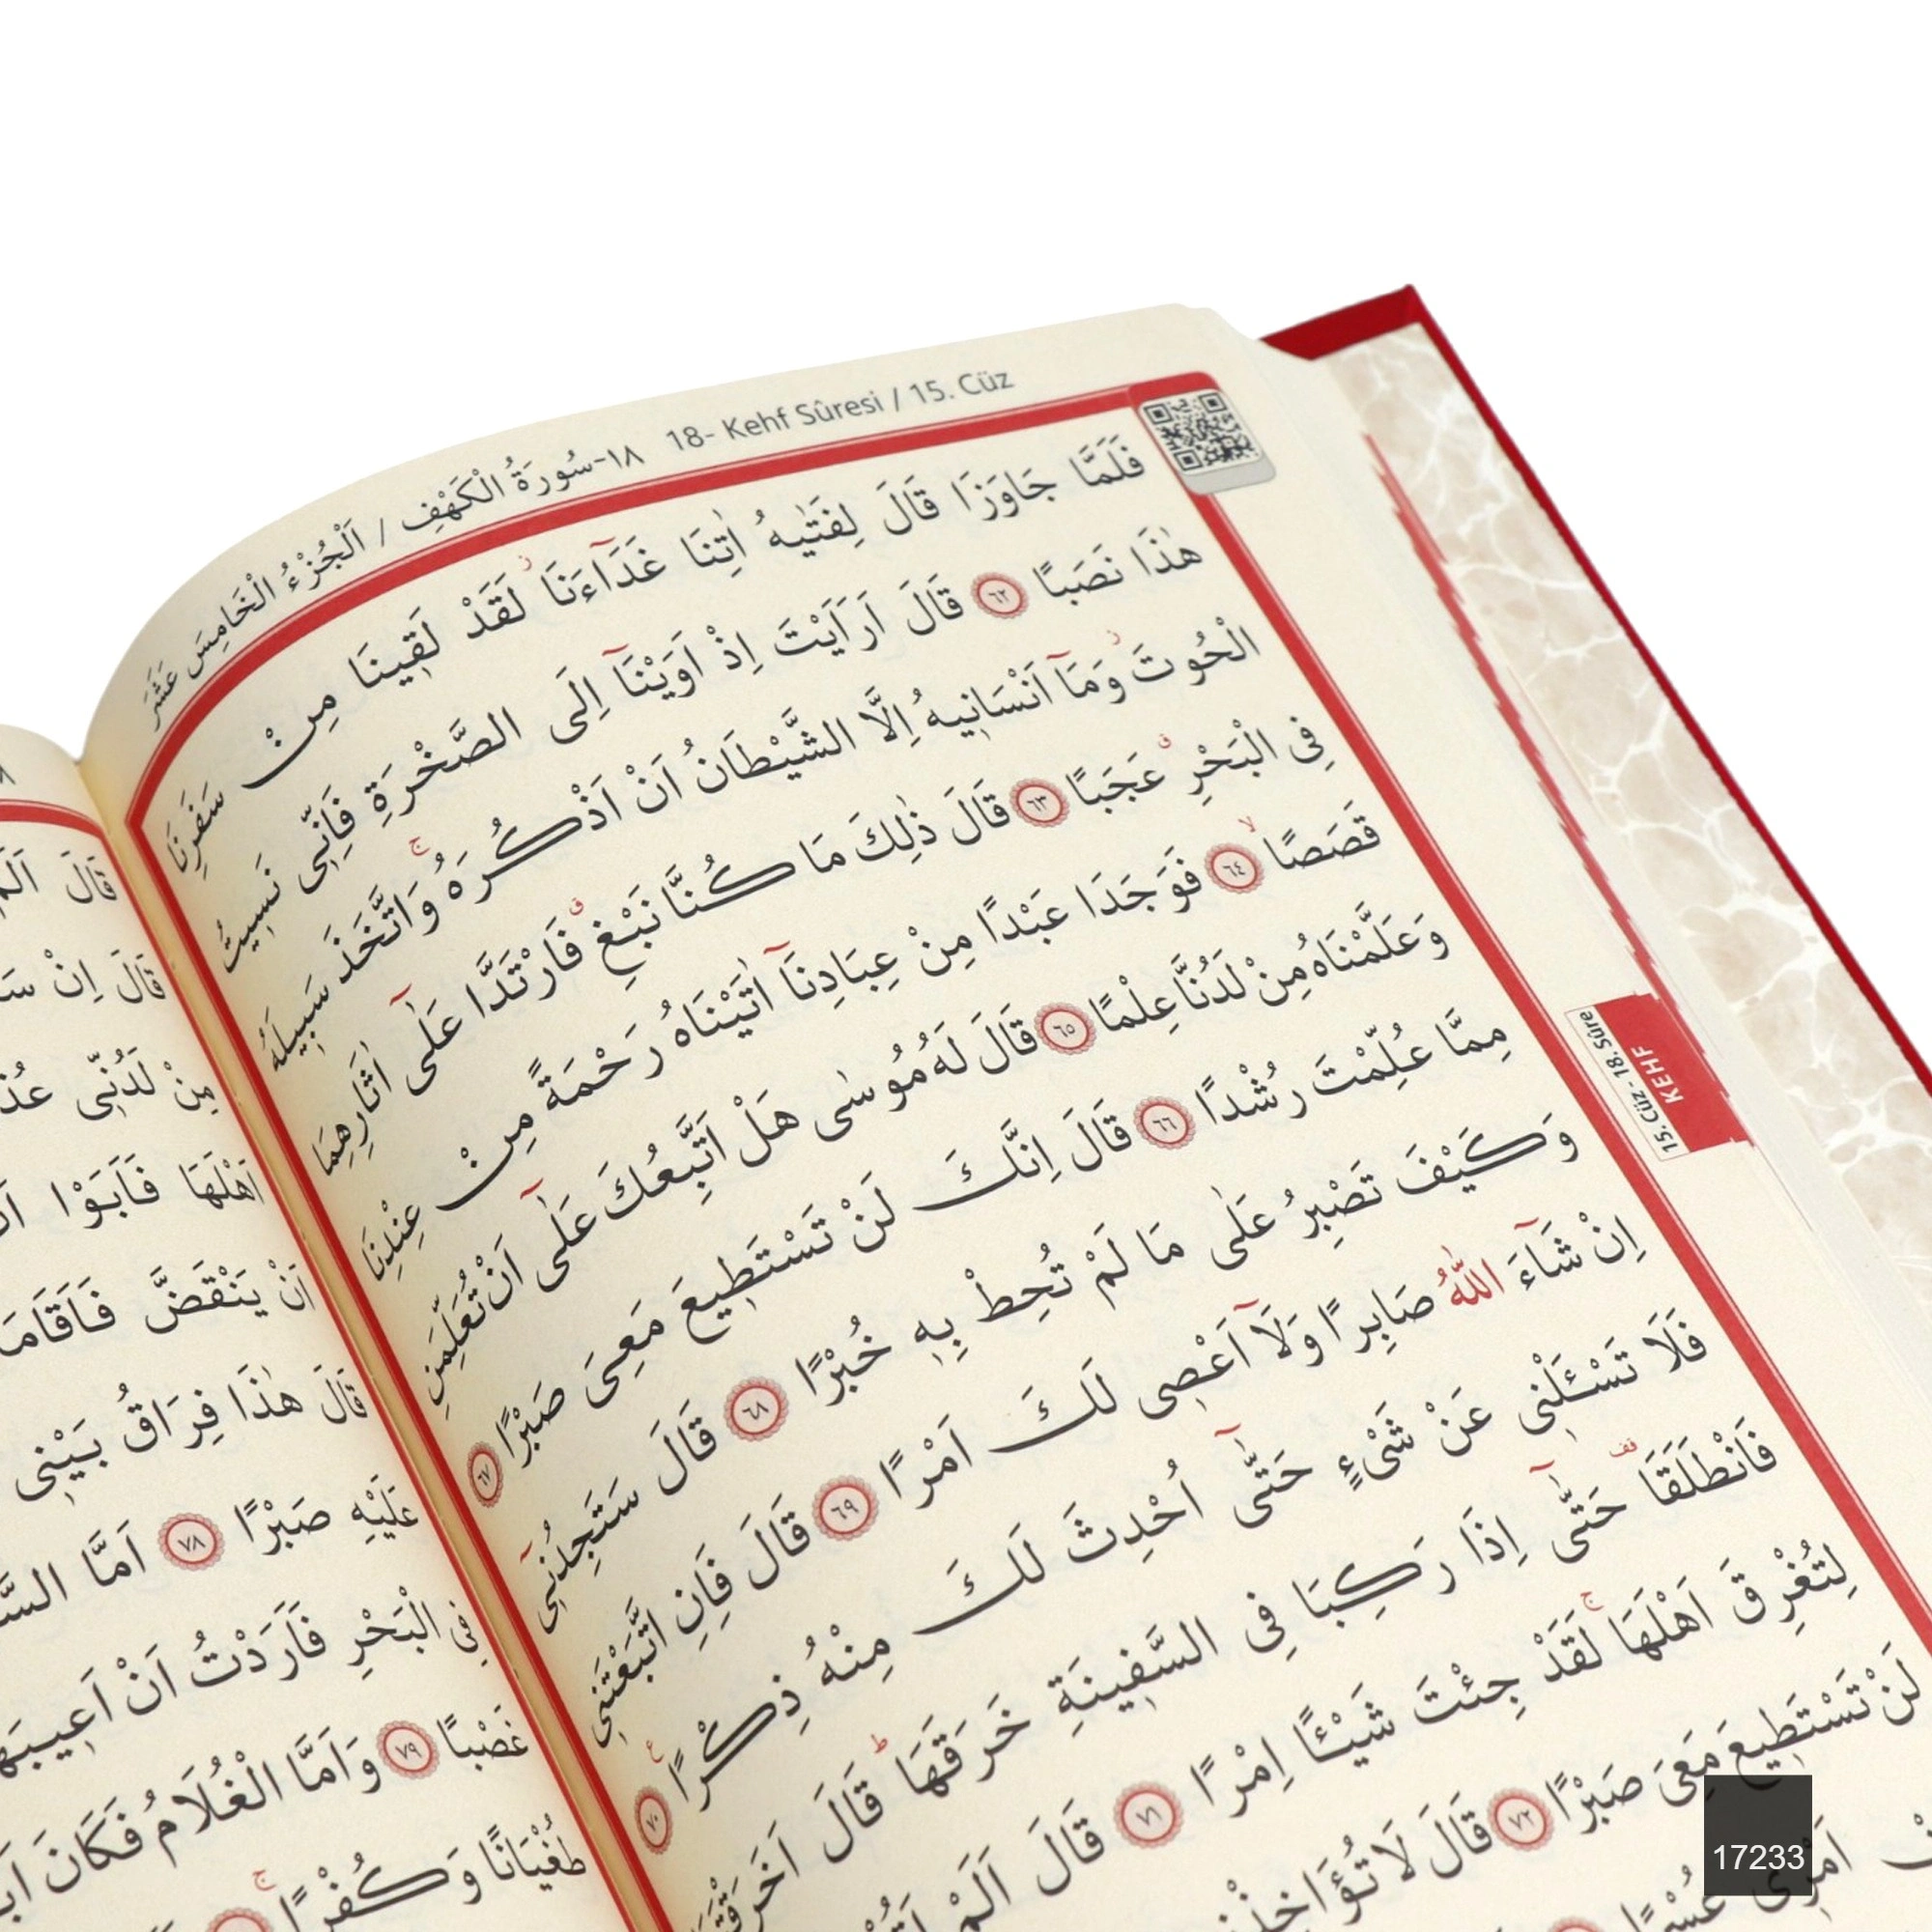 ١٨-سُورَةُ الْكَهْفِ / اَلْجُزْءُ الْخَامِسَ عَشَرَ
18- Kehf Sûresi / 15. Cüz
فَلَمَّا جَاوَزَا قَالَ لِفَتٰيهُ اٰتِنَا غَدَٓاءَنَاۘ لَقَدْ لَقٖينَا مِنْ سَفَرِنَا
هٰذَا نَصَبًا ﴿٦٢﴾ قَالَ اَرَاَيْتَ اِذْ اَوَيْنَٓا اِلَى الصَّخْرَةِ فَاِنّٖى نَسٖيتُ
الْحُوتَۘ وَمَٓا اَنْسَانٖيهُ اِلَّا الشَّيْطَانُ اَنْ اَذْكُرَهُۚ وَاتَّخَذَ سَبٖيلَهُ
فِى الْبَحْرِۗ عَجَبًا ﴿٦٣﴾ قَالَ ذٰلِكَ مَا كُنَّا نَبْغِۗ فَارْتَدَّا عَلٰٓى اٰثَارِهِمَا
قَصَصًاۙ ﴿٦٤﴾ فَوَجَدَا عَبْدًا مِنْ عِبَادِنَٓا اٰتَيْنَاهُ رَحْمَةً مِنْ عِنْدِنَا
وَعَلَّمْنَاهُ مِنْ لَدُنَّا عِلْمًا ﴿٦٥﴾ قَالَ لَهُ مُوسٰى هَلْ اَتَّبِعُكَ عَلٰٓى اَنْ تُعَلِّمَنِ
مِمَّا عُلِّمْتَ رُشْدًا ﴿٦٦﴾ قَالَ اِنَّكَ لَنْ تَسْتَطٖيعَ مَعِىَ صَبْرًا ﴿٦٧﴾
وَكَيْفَ تَصْبِرُ عَلٰى مَا لَمْ تُحِطْ بِهٖ خُبْرًا ﴿٦٨﴾ قَالَ سَتَجِدُنٖٓى
اِنْ شَٓاءَ اللّٰهُ صَابِرًا وَلَٓا اَعْصٖى لَكَ اَمْرًا ﴿٦٩﴾ قَالَ فَاِنِ اتَّبَعْتَنٖى
فَلَا تَسْـَٔلْنٖى عَنْ شَىْءٍ حَتّٰٓى اُحْدِثَ لَكَ مِنْهُ ذِكْرًا ع ﴿٧٠﴾
فَانْطَلَقَا قف حَتّٰٓى اِذَا رَكِبَا فِى السَّفٖينَةِ خَرَقَهَاؕ قَالَ اَخَرَقْتَهَا
لِتُغْرِقَ اَهْلَهَاۚ لَقَدْ جِئْتَ شَيْـًٔا اِمْرًا ﴿٧١﴾ قَالَ اَلَمْ
لَنْ تَسْتَطٖيعَ مَعِىَ صَبْرًا ﴿٧٢﴾ قَالَ لَا تُؤَاخِذْنٖى
اَمْرٖى عُسْرًا
15. Cüz - 18. Sûre
KEHF
قَالَ اَلَمْ
قَالَ اِنْ
مِنْ لَدُنّٖى
اَهْلَهَا فَاَبَوْا
اَنْ يَنْقَضَّ فَاَقَامَهُ
قَالَ هٰذَا فِرَاقُ بَيْنٖى
عَلَيْهِ صَبْرًا ﴿٧٨﴾ اَمَّا
فِى الْبَحْرِ فَاَرَدْتُ اَنْ اَعٖيبَهَا
غَصْبًا ﴿٧٩﴾ وَاَمَّا الْغُلَامُ فَكَانَ
طُغْيَانًا وَكُفْرًاۚ
17233